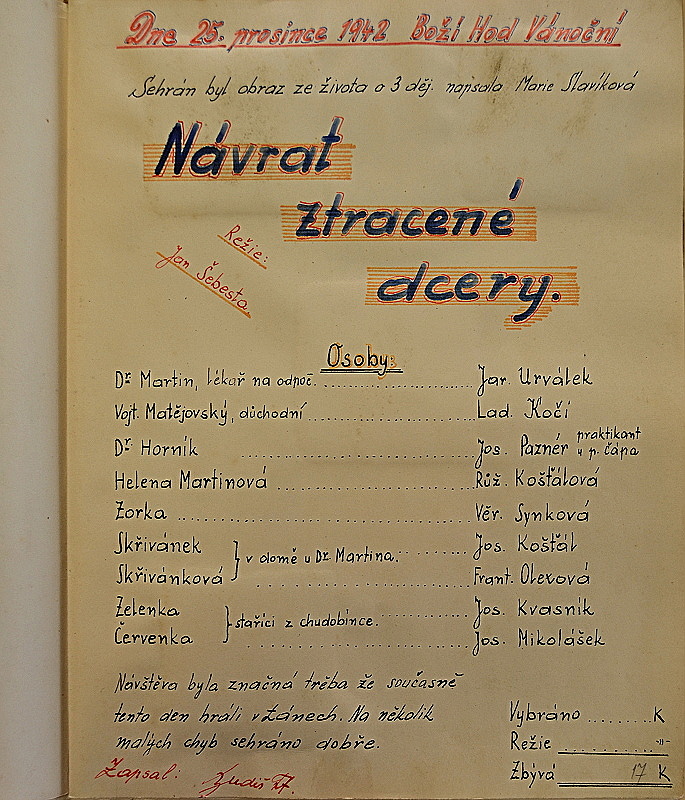 Dne 25. prosince 1942 Boží Hod Vánoční
Sehrán byl obraz ze života o 3 děj. napsala Marie Slavíková
Návrat
ztracené
dcery.
Režie:
Jan Šebesta.
Osoby:
Dr Martin, lékař na odpoč. ........ Jar. Urválek
Vojt. Matějovský, důchodní ........ Lad. Kočí
Dr Horník ........ Jos. Paznér praktikant u p. Čápa
Helena Martinová ........ Růž. Košťálová
Zorka ........ Věr. Synková
Skřivánek ........ Jos. Košťál
} v domě u Dr Martina.
Skřivánková ........ Frant. Olexová
Zelenka ........ Jos. Kvasník
} stařící z chudobince.
Červenka ........ Jos. Mikolášek
Návštěva byla značná třeba že současně
tento den hráli v Žánech. Na několik
malých chyb sehráno dobře.
Vybráno ........ K
Režie ........ -"-
Zbývá 17 K
Zapsal: